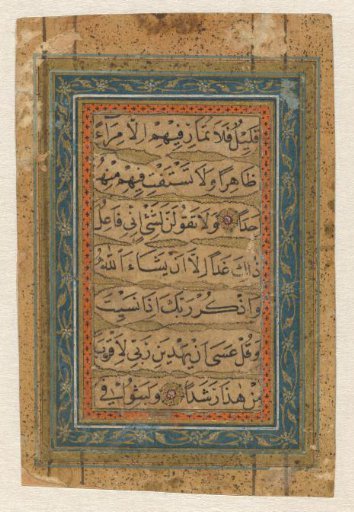 قَلِيلٌ فَلَا تُمَارِ فِيهِمْ إِلَّا مِرَآءً
ظَاهِرًا وَلَا تَسْتَفْتِ فِيهِمْ مِنْهُمْ
أَحَدًا وَلَا تَقُولَنَّ لِشَيْءٍ إِنِّي فَاعِلٌ
ذَلِكَ غَدًا إِلَّا أَنْ يَشَاءَ اللَّهُ
وَاذْكُرْ رَبَّكَ إِذَا نَسِيتَ
وَقُلْ عَسَى أَنْ يَهْدِيَنِ رَبِّي لِأَقْرَبَ
مِنْ هَذَا رَشَدًا وَلَبِثُوا فِي